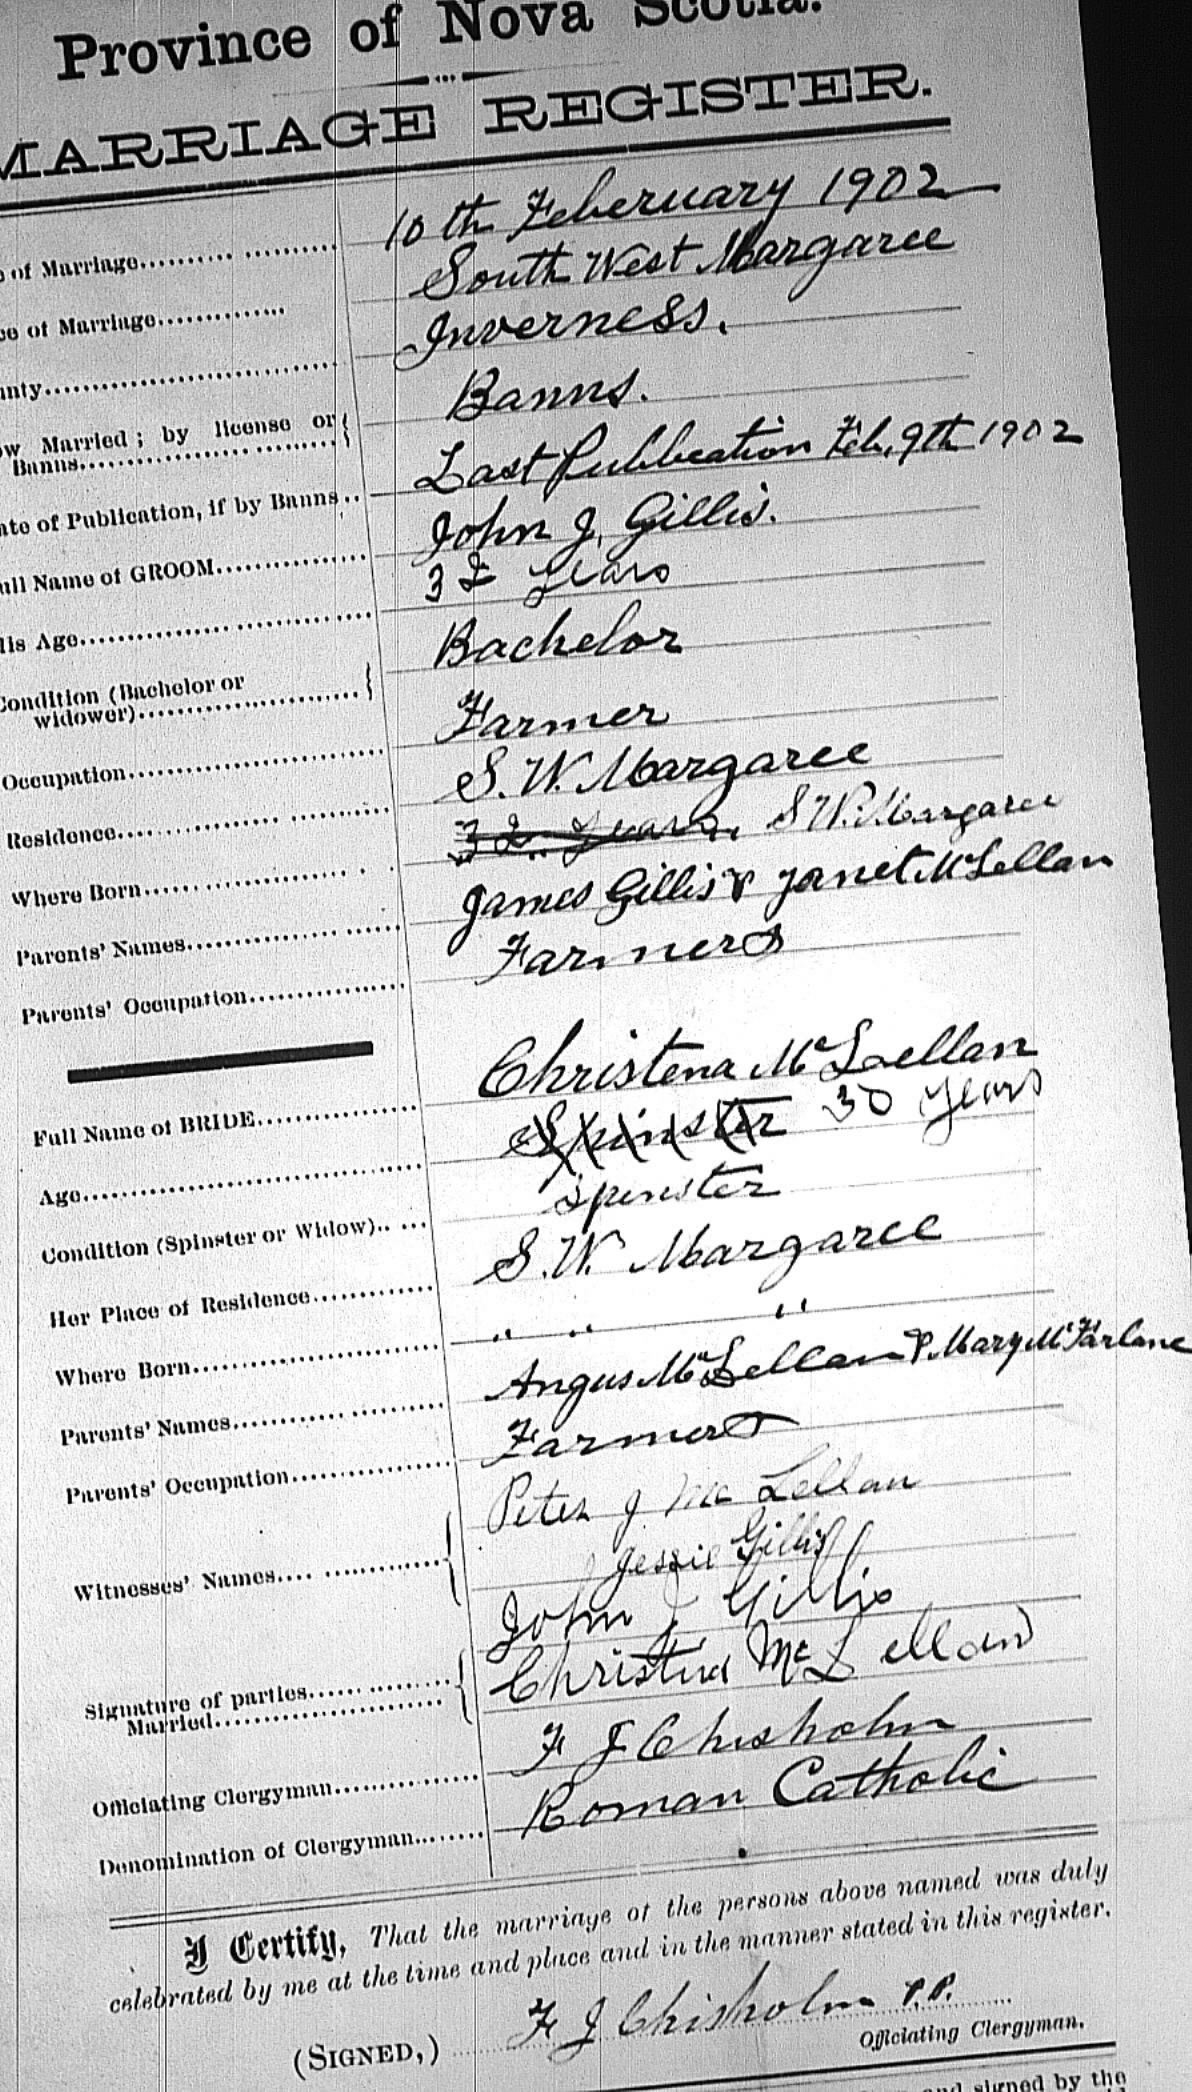 Province of Nova Scotia.
MARRIAGE REGISTER.
of Marriage 10th Feberuary 1902
of Marriage South West Margaree
Inverness.
Married; by license or Banns Banns.
of Publication, if by Banns Last Publication Feb. 9th 1902
Name of GROOM John J. Gillis.
Age 32 years
Condition (Bachelor or widower) Bachelor
Occupation Farmer
Residence S. W. Margaree
Where Born 32 years S W. Margaree
Parents' Names James Gillis & Janet McLellan
Parents' Occupation Farmers
Full Name of BRIDE Christena McLellan
Age Spinster 30 years
Condition (Spinster or Widow) Spinster
Her Place of Residence S. W. Margaree
Where Born " " "
Parents' Names Angus McLellan & Mary McFarlane
Parents' Occupation Farmers
Witnesses' Names Peter J McLellan
Jessie Gillis
Signature of parties Married John J Gillis
Christina McLellan
Officiating Clergyman F J Chisholm
Denomination of Clergyman Roman Catholic
I Certify, That the marriage of the persons above named was duly
celebrated by me at the time and place and in the manner stated in this register.
(SIGNED,) F J Chisholm P.P.
Officiating Clergyman.
and signed by the